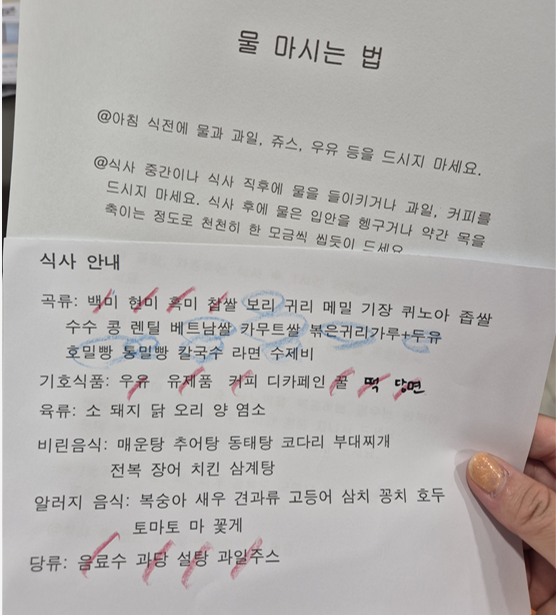 물 마시는 법
@아침 식전에 물과 과일, 쥬스, 우유 등을 드시지 마세요.
@식사 중간이나 식사 직후에 물을 들이키거나 과일, 커피를
드시지 마세요. 식사 후에 물은 입안을 헹구거나 약간 목을
축이는 정도로 천천히 한 모금씩 씹듯이 드세요
식사 안내
곡류: 백미 현미 흑미 찹쌀 보리 귀리 메밀 기장 퀴노아 좁쌀
수수 콩 렌틸 베트남쌀 카무트쌀 볶은귀리가루+두유
호밀빵 통밀빵 칼국수 라면 수제비
기호식품: 우유 유제품 커피 디카페인 꿀 떡 당면
육류: 소 돼지 닭 오리 양 염소
비린음식: 매운탕 추어탕 동태탕 코다리 부대찌개
전복 장어 치킨 삼계탕
알러지 음식: 복숭아 새우 견과류 고등어 삼치 꽁치 호두
토마토 마 꽃게
당류: 음료수 과당 설탕 과일주스